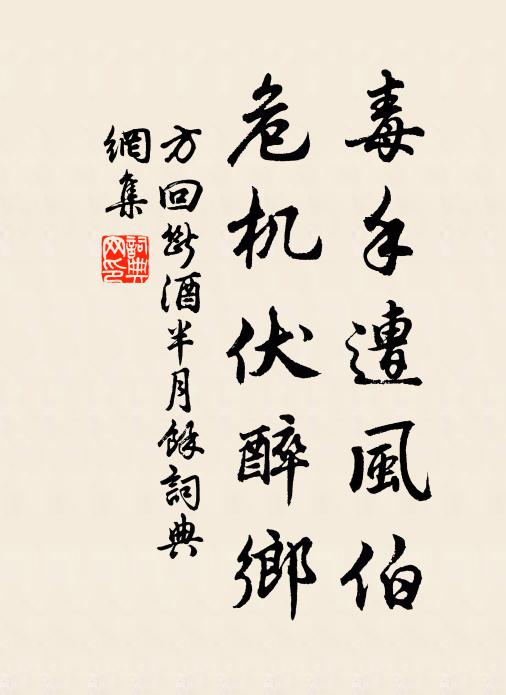 毒手遭風伯
危机伏醉鄉
方回斷酒半月餘詞典
網集
詞典網印